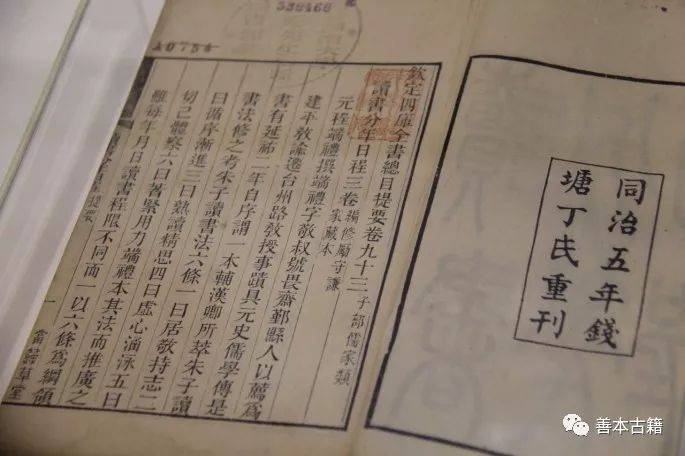 同治五年錢
塘丁氏重刊
欽定四庫全書總目提要卷九十三子部儒家類
讀書分年日程三卷編修勵守謙家藏本
元程端禮撰端禮字敬叔號畏齋鄞縣人以薦爲
建平敎諭遷台州路敎授事蹟具元史儒學傳是
書有延祐二年自序謂一本輔漢卿所萃朱子讀
書法修之考朱子讀書法六條一曰居敬持志二
曰循序漸進三曰熟讀精思四曰虛心涵泳五曰
切己體察六曰著緊用力端禮本其法而推廣之
雖每年月日讀書程限不同而一以六條爲綱領
當歸草堂
一
提要
A0754
538466
善本古籍